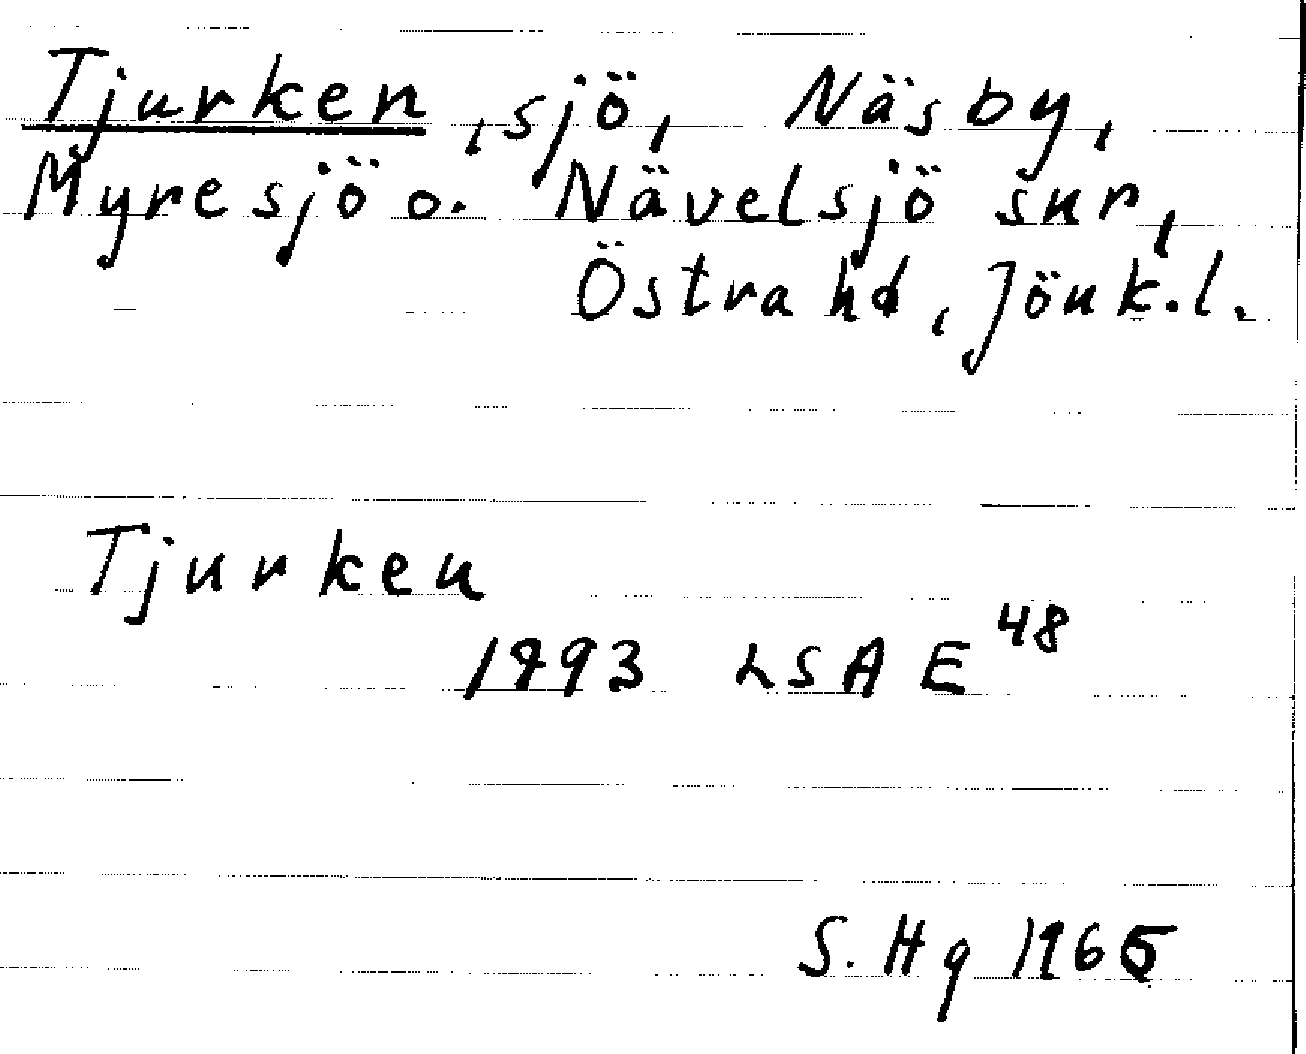 Tjurken, sjö, Näsby,
Myresjö o. Nävelsjö snr,
Östra hd, Jönk.l.
Tjurken
1793 LSA E 48
S. Hg 1965